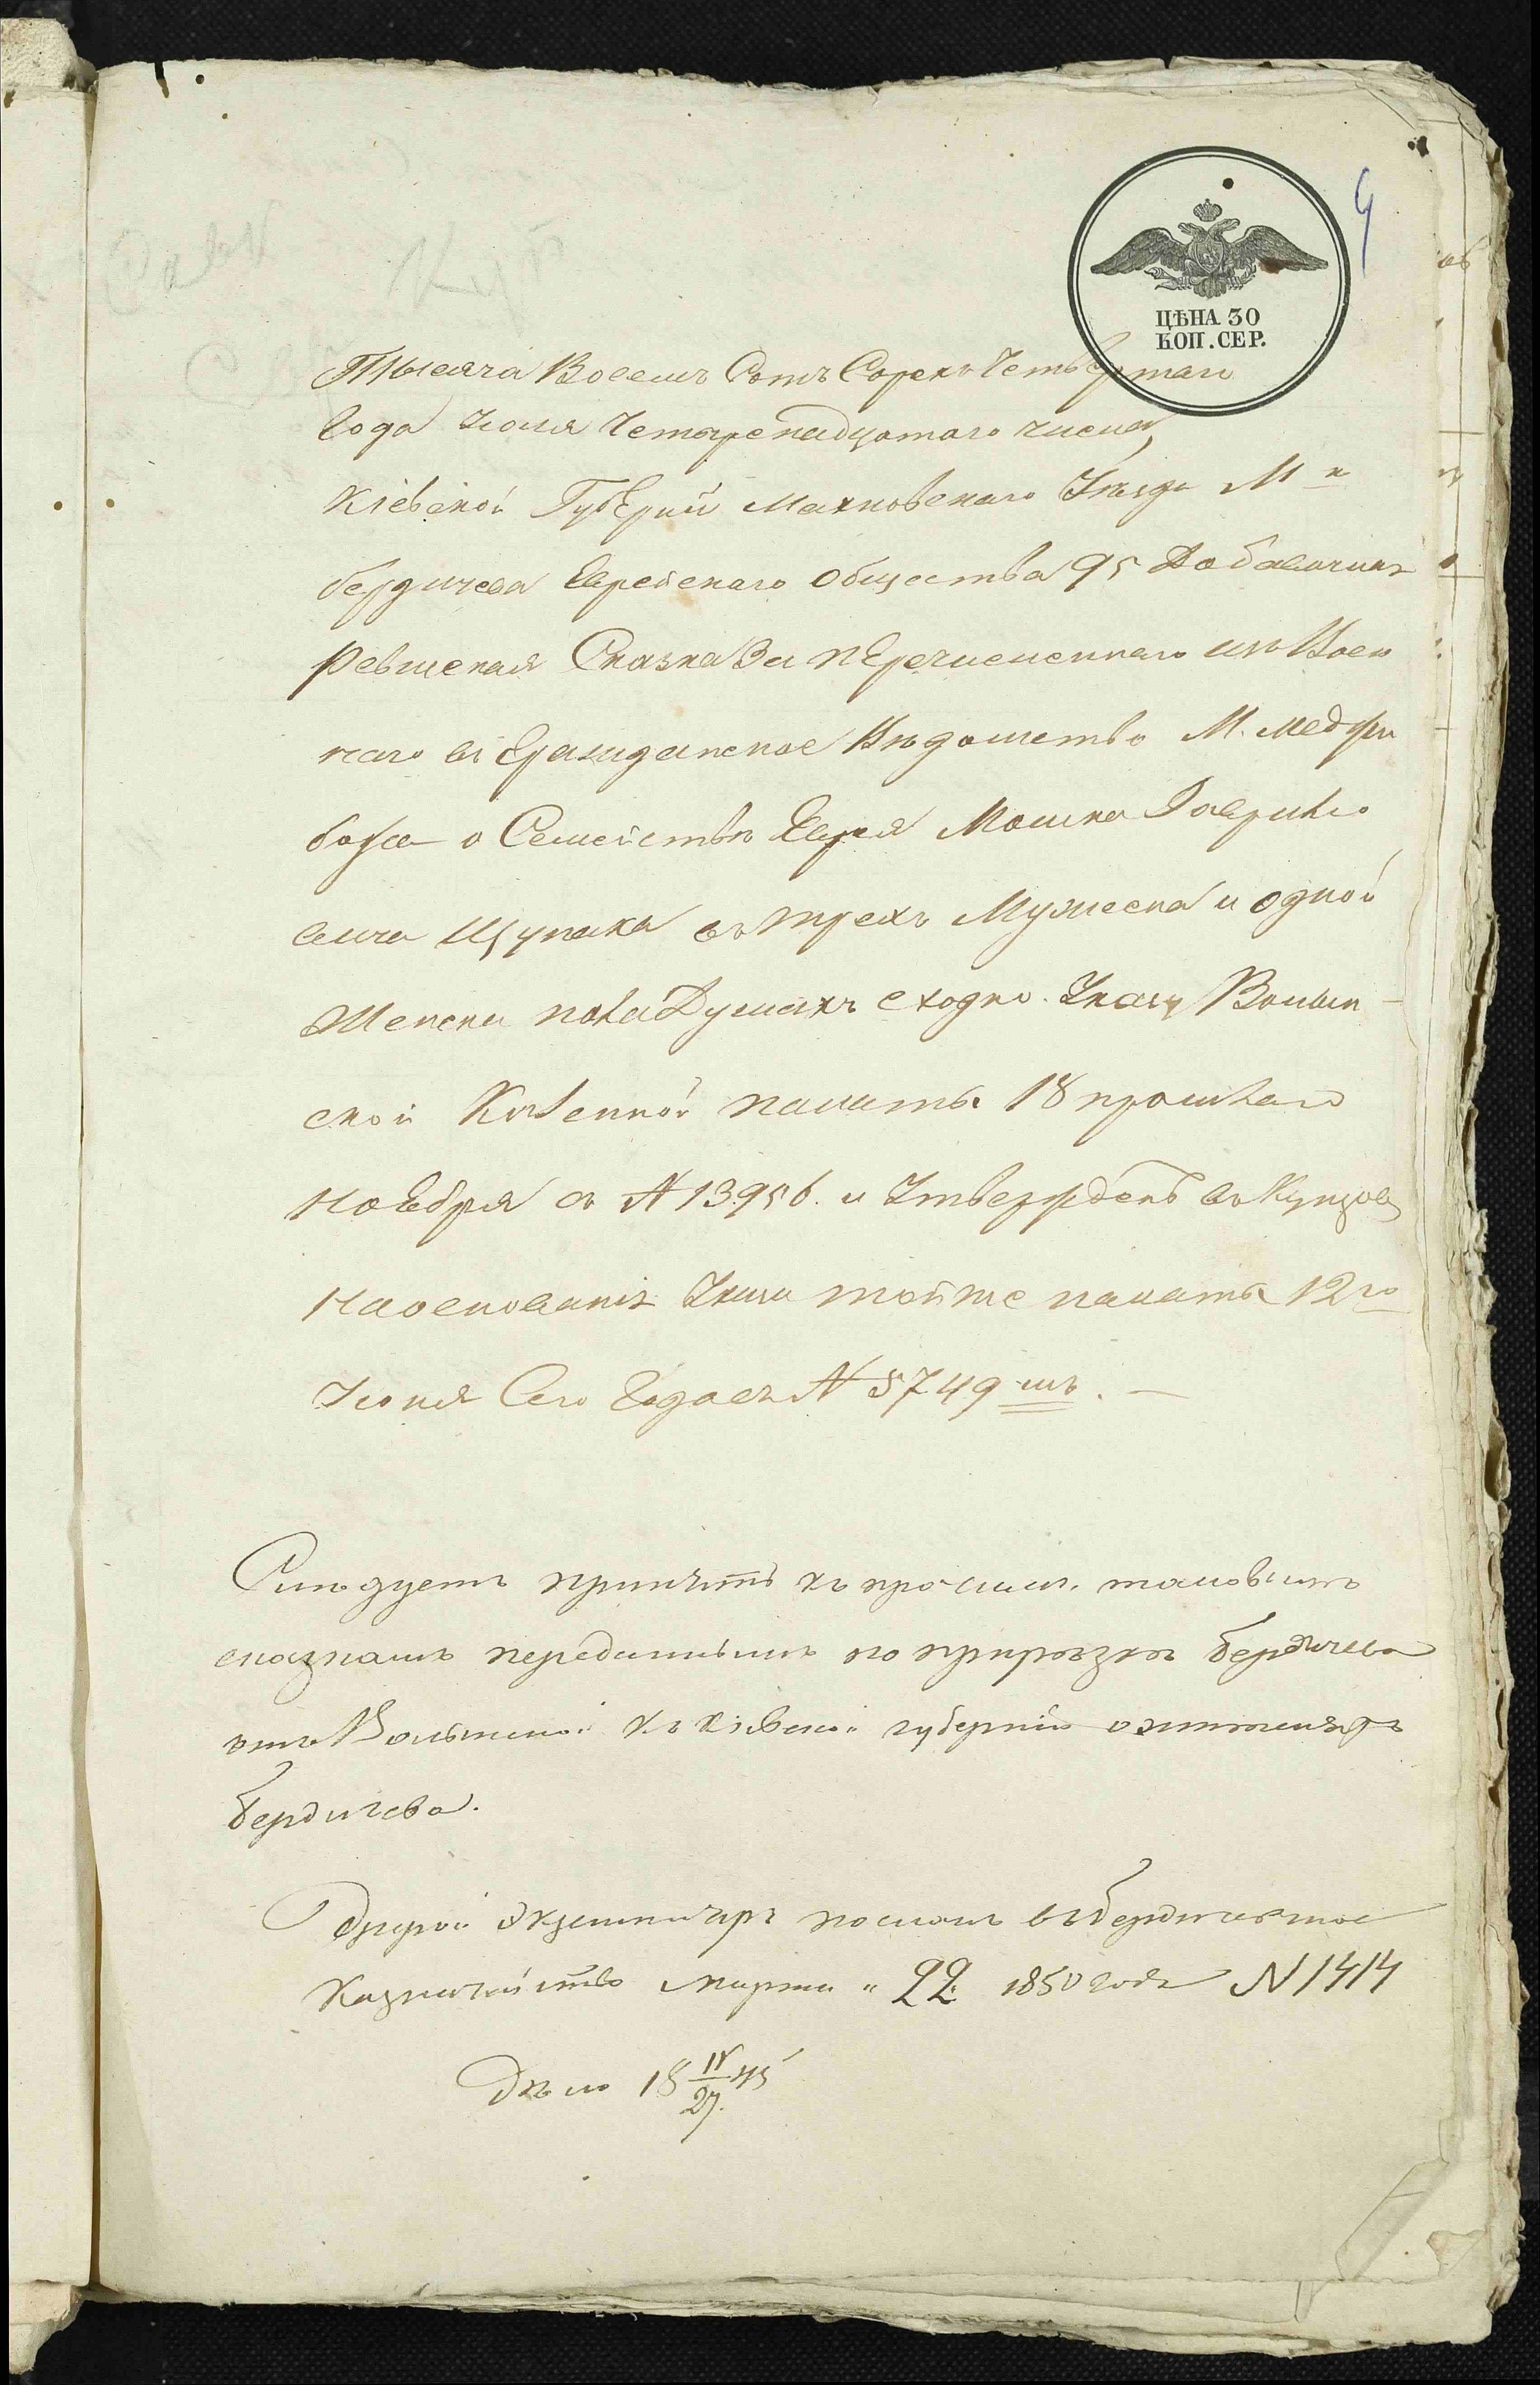 4
ЦѢНА 30
КОП. СЕР.
Тысяча Восемъ Сотъ Сорокъ Четвертаго
Года Іюля Четыренадцатаго числа
Кіевской Губерніи Махновскаго Уѣзда М-ка
бердичева Еврейскаго Общества 95 Добавочная
Ревиская Сказка За перечисленнаго изъ Воен
наго въ Гражданское Вѣдомство М. Меджи
божа о Семействѣ Еврея Мошка Гаврило
вича Щупака въ трехъ Мужеска и одной
Женска пола Душахъ сходно Указу Волын
ской Казенной палаты 18 прошлаго
Ноября за N 13956. и Утвержденъ въ Купцы
На основаніи Указа тойже палаты 12го
Іюня Сего Года за N 5749-мъ. —
Слѣдуетъ къ прочимъ таковымъ
сказкамъ переданнымъ по прирѣзкѣ Бердичева
отъ Волынской къ Кіевской губерніи
Бердичева.
Другой Экземпляръ посланъ въ Бердичевское
Казначейство марта 22 1850 года N 1414
Дѣло 18 IV/27 45